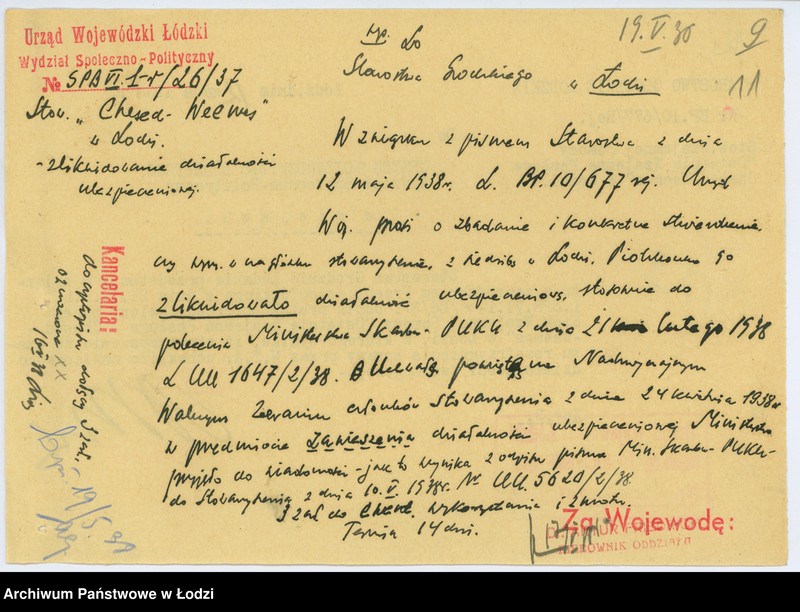 Urząd Wojewódzki Łódzki
Wydział Społeczno-Polityczny
№ SPB VI. 1-r/26/37
Stow. „Chesed-Weemes"
w Łodzi.
- zlikwidowanie działalności
ubezpieczeniowej.
19.V.38
9
11
Do
Starostwa Grodzkiego w Łodzi
W związku z pismem Starostwa z dnia
12 maja 1938r. L. BP. 10/677 rej. Urząd
Woj. prosi o zbadanie i konkretne stwierdzenie,
czy wym. w nagłówku stowarzyszenie, z siedzibą w Łodzi, Piotrkowska 90
zlikwidowało działalność ubezpieczeniową, stosownie do
polecenia Ministerstwa Skarbu - PUKU z dnia lutego 1938
L UU 1647/2/38. Uchwałę powziętą na Nadzwyczajnym
Walnym Zebraniu członków Stowarzyszenia z dnia 24 kwietnia 1938r
w przedmiocie zawieszenia działalności ubezpieczeniowej Ministerstwo
przyjęło do wiadomości - jak to wynika z odpisu pisma Min. Skarbu - PUKU -
do Stowarzyszenia z dnia 10.V. 1938r. Nr UU. 5620/2/38
3 zał. do wykorzystania i zwrotu.
Termin 14 dni.
Kancelaria:
do czystopisu dołącz 3 zał.
19/5. 38
Za Wojewodę:
KIEROWNIK ODDZIAŁU
Archiwum Państwowe w Łodzi